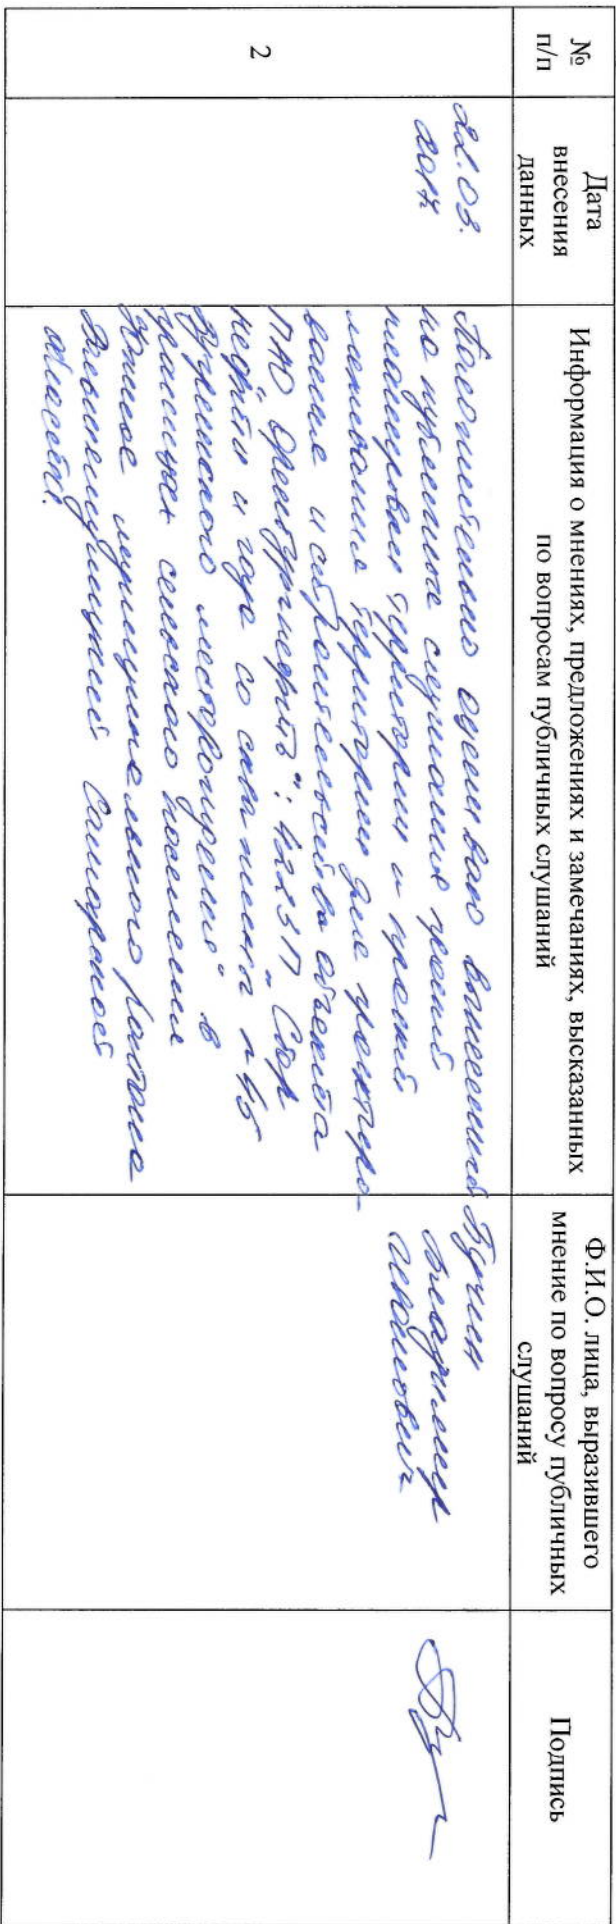 №
п/п
Дата
внесения
данных
Информация о мнениях, предложениях и замечаниях, высказанных
по вопросам публичных слушаний
Ф.И.О. лица, выразившего
мнение по вопросу публичных
слушаний
Подпись
2
22.03.
2017
Положительно оцениваю вынесенный
на публичные слушания проект
планировки территории и проект
межевания территории для проектиро-
вания и строительства объекта
ПАО Оренбургнефть": 4225П "Сбор
нефти и газа со скважины № 45
месторождения" в
границах сельского поселения
муниципального района
Самарской
области.
Владимир